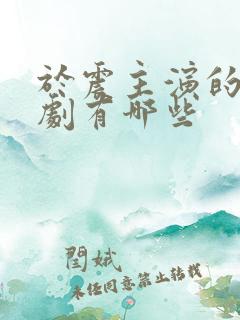 於震主演的
劇有哪些
閆娥
未经同意禁止转载